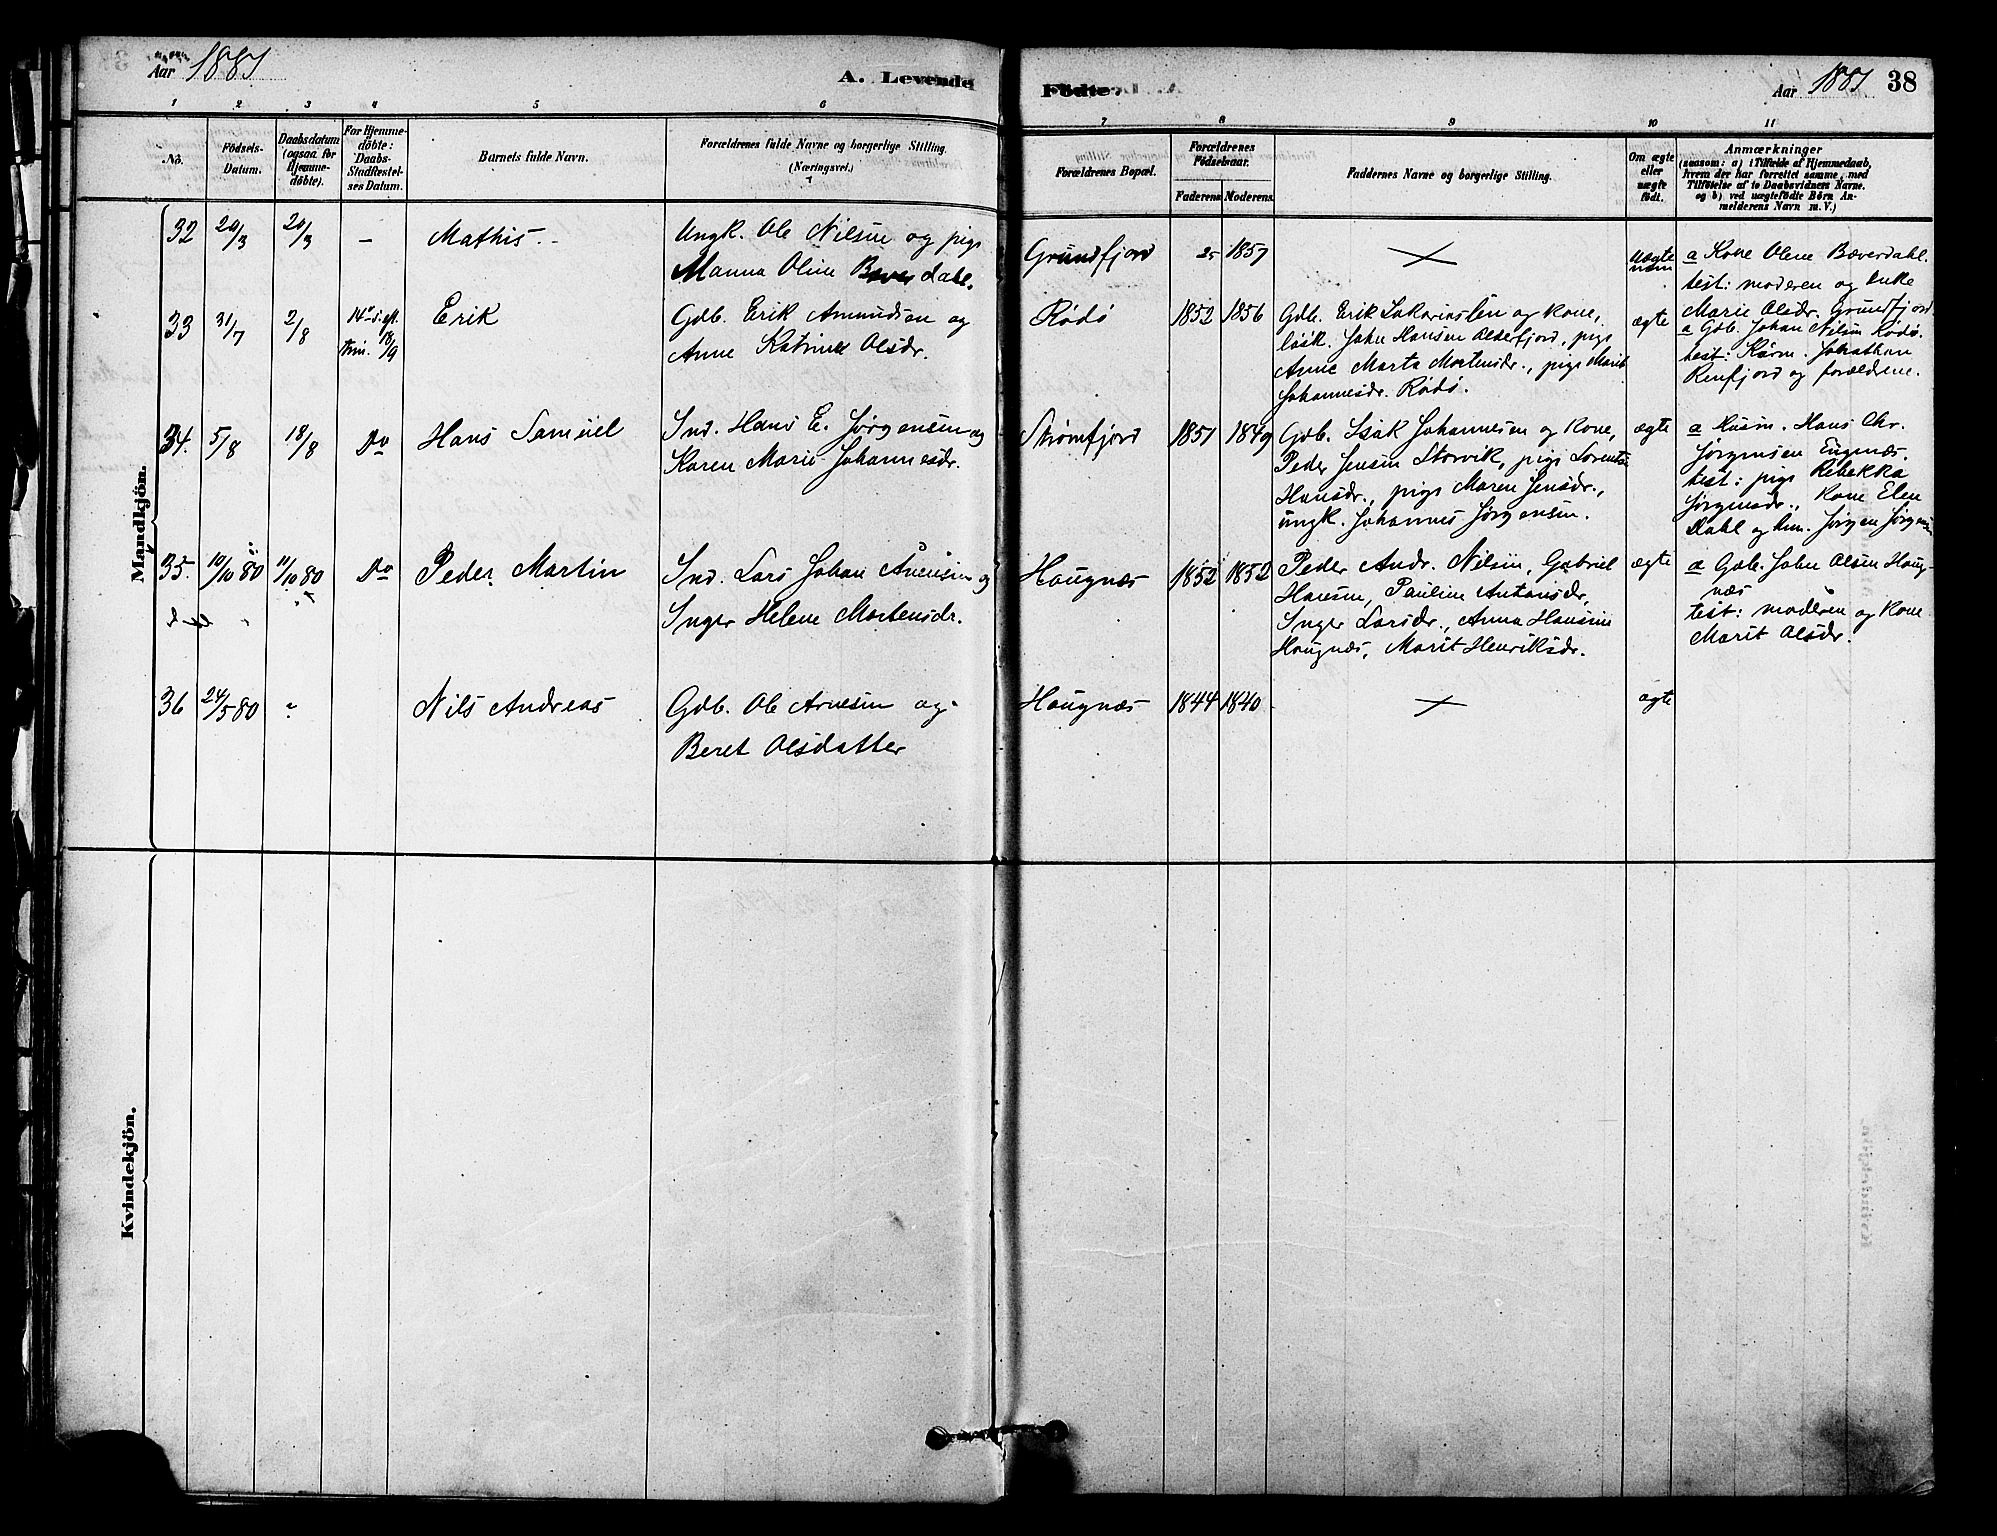 Aar 1881
A. Levende
Födte.
Aar 1881 38
1 2 3 4 5 6 7 8 9 10 11
No.
Födsels-
Datum.
Daabsdatum
(ogsaa for
Hjemme-
döbte).
For Hjemme-
döbte:
Daabs-
Stadfæstel-
ses Datum.
Barnets fulde Navn.
Forældrenes fulde Navne og borgerlige Stilling.
(Næringsvei.)
Forældrenes Bopæl.
Forældrenes
Födselsaar.
Faderens Moderens
Faddernes Navne og borgerlige Stilling.
Om ægte
eller
uægte
födt.
Anmærkninger
(saasom: a) i Tilfælde af Hjemmedaab,
hvem der har forrettet samme, med
Tilföielse af to Daabsvidners Navne.
og b) ved uægtefödte Börn An-
melderens Navn m. V.)
Mandkjön.
32 20/3 20/3 - Mathis. -
Ungk. Ole Nilsen og pige
Manna Oline Beverdahl.
Grundfjord 25 1857
uægte
a Kone Olene Bæverdahl.
test: moderen og enke
Marie Olsdr. Grundfjord.
33 31/7 2/8 14de s. eft. trin. 18/9 Erik
Gdb. Erik Amundsen og
Anne Katrine Olsdr.
Rödö 1852 1856
Gdb. Erik Sakariassen og kone,
løsk. John Hansen Olderfjord, pige
Anne Marta Mortensdr., pige Marit
Johannesdr. Rödö.
ægte
a Gdb. Johan Nilsen Rödö.
test: Jonathan
Renfjord og forældrene.
34. 5/8 18/8 Do Hans Samuel
Ind. Hans E. Jørgensen og
Karen Marie Johannesdr.
Strömfjord 1851 1849
Gdb. Isak Johannesen og kone,
Peder Jensen Storvik, pige Lorentse
Hansdr., pige Maren Jensdr.,
ungk. Johannes Jörgensen.
ægte
a Husm. Hans Chr.
Jörgensen Engnæs.
test: pige Rebekka
Jörgensdr., kone Elen
Dahl og hm. Jörgen Jörgensen
35. 10/10 80 11/10 80 Do Peder Martin
Ind. Lars Johan Arnesen og
Inger Helene Mortensdr.
Haugnæs 1852 1852
Peder Andr. Nilsen, Gabriel
Hansen, Pauline Antonsdr,
Inger Larsdr., Anna Hansine
Haugnæs, Marit Henriksdr.
ægte
a Gdb. John Olsen Haug-
næs
test: moderen og kone
Marit Olsdr.
36 24/5 80 ? Nils Andreas
Gdb. Ole Arnesen og
Beret Olsdatter
Haugnæs 1844 1840
ægte
Kvindekjön.